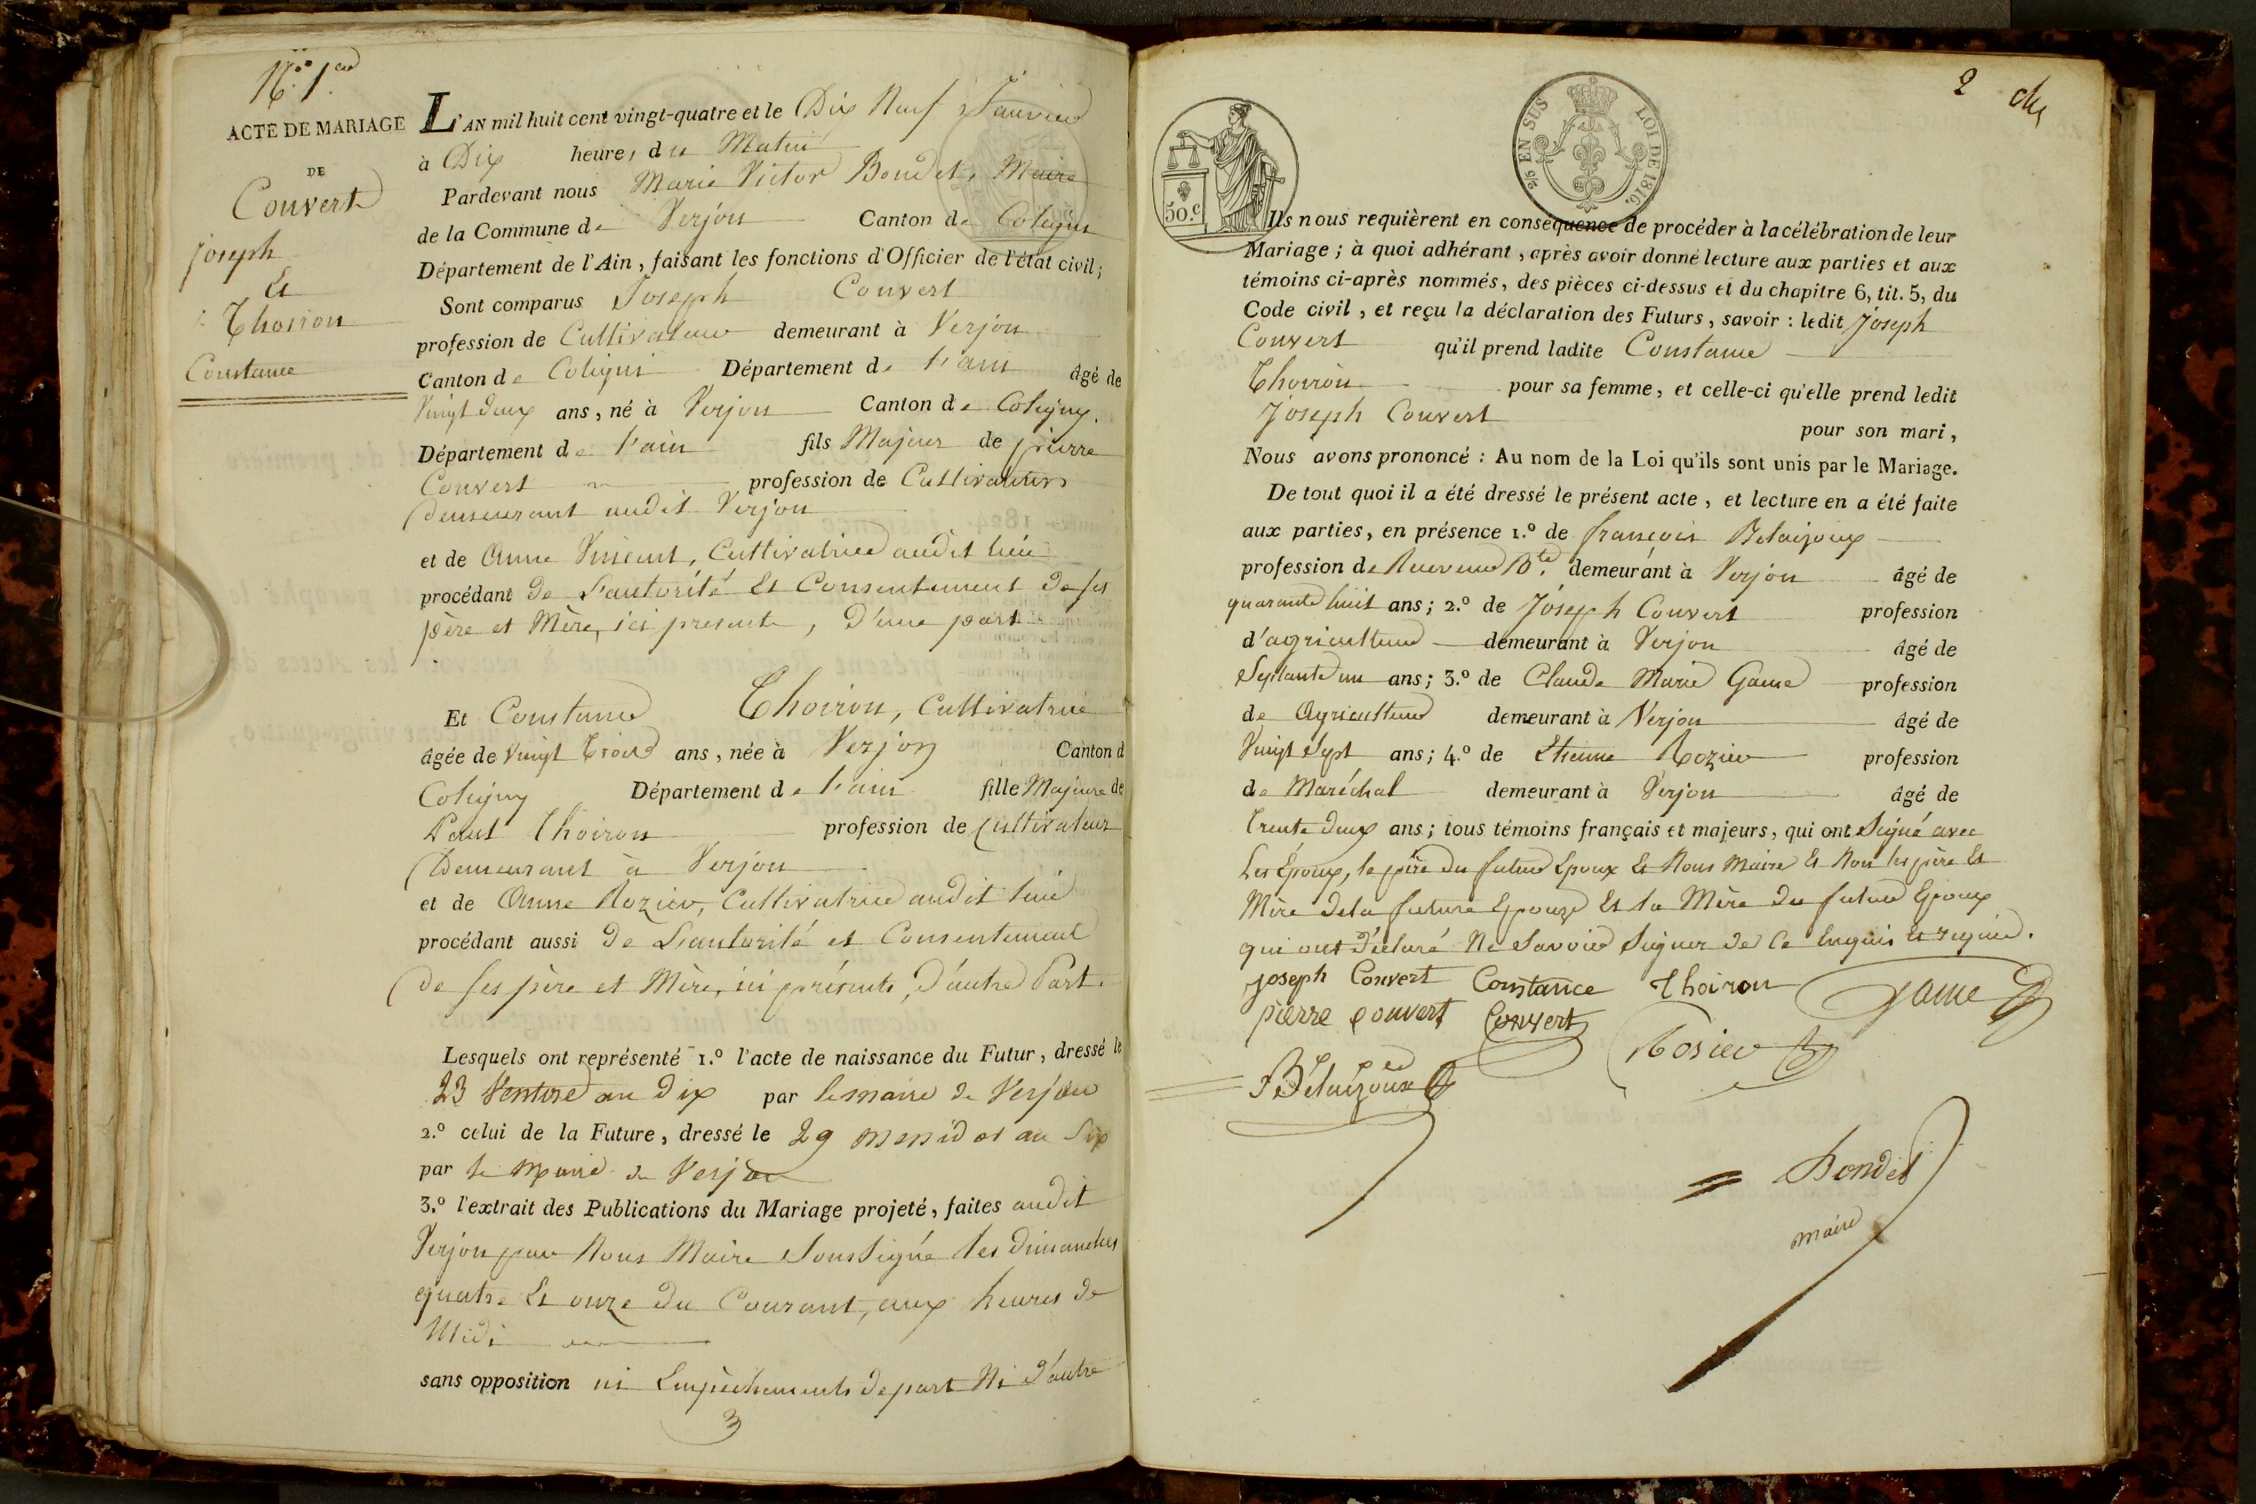 N.° 1.er
ACTE DE MARIAGE
DE
Convert
Joseph
Et
Thoiron
Constance
L'AN mil huit cent vingt-quatre et le Dix Neuf Janvier
à Dix heures du Matin
Pardevant nous Marie Victor Bondet, Maire
de la Commune de Verjon Canton de Coligni
Département de l'Ain, faisant les fonctions d'Officier de l'état civil;
Sont comparus Joseph Convert
profession de Cultivateur demeurant à Verjon
Canton de Coligni Département de l'ain âgé de
Vingt deux ans, né à Verjon Canton de Coligny.
Département de l'ain fils Majeur de pierre
Convert profession de Cultivateur
Demeurant audit Verjon
et de Anne Vincent, Cultivatrice audit lieu
procédant de L'autorité Et Consentement de ses
père et Mère, ici présents, D'une part
Et Constance Thoiron, Cultivatrice
âgée de Vingt Trois ans, née à Verjon Canton d
Coligny Département de l'ain fille Majeure de
Paul Thoiron profession de Cultivateur
Demeurant à Verjon
et de Anne Rozier, Cultivatrice audit lieu
procédant aussi de L'autorité et Consentement
de ses père et Mère, ici présents, D'autre Part.
Lesquels ont représenté 1.° l'acte de naissance du Futur, dressé le
23 Ventose an Dix par le maire de Verjon
2.° celui de la Future, dressé le 29 Messidor an Six
par le Maire de Verjon
3.° l'extrait des Publications du Mariage projeté, faites audit
Verjon par Nous Maire Soussigné les dimanches
quatre Et onze du Courant, aux heures de
Midi
sans opposition ni Empêchements de part Ni D'autre
3
2
50.c
2/5 EN SUS
LOI DE 1816.
Ils nous requièrent en conséquence de procéder à la célébration de leur
Mariage; à quoi adhérant, après avoir donné lecture aux parties et aux
témoins ci-après nommés, des pièces ci-dessus et du chapitre 6, tit. 5, du
Code civil, et reçu la déclaration des Futurs, savoir: ledit Joseph
Convert qu'il prend ladite Constance
Thoiron pour sa femme, et celle-ci qu'elle prend ledit
Joseph Convert
pour son mari,
Nous avons prononcé: Au nom de la Loi qu'ils sont unis par le Mariage.
De tout quoi il a été dressé le présent acte, et lecture en a été faite
aux parties, en présence 1.° de françois Bélaizoux
profession de demeurant à Verjon âgé de
quarante huit ans; 2.° de Joseph Convert profession
d'agriculteur demeurant à Verjon âgé de
Septante un ans; 3.° de Claude Marie Game profession
de Agriculteur demeurant à Verjon âgé de
Vingt Sept ans; 4.° de Etienne Rozier profession
de Maréchal demeurant à Verjon âgé de
Trente deux ans; tous témoins français et majeurs, qui ont Signé avec
Les Époux, le père du futur Epoux Et Nous Maire Et Non les père Et
Mère de la future Epouze Et la Mère du futur Epoux
qui ont Déclaré Ne Savoir Signer de Ce Enquis et requis.
joseph Convert Constance Thoiron Game
pierre convert Convert Rosier
Bélaizoux
Bondet
maire